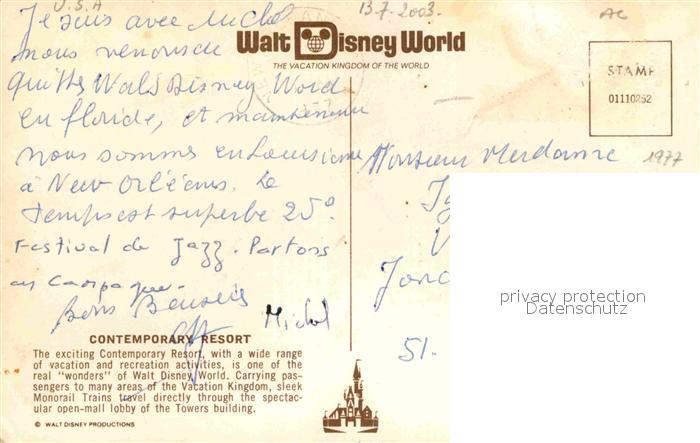 U.S.A
13-7-2003.
AC
Je suis avec Michel
nous venons de
quitter Walt Disney Word
en floride, et maintenant
nous sommes en Louisiane
à New Orléans. Le
temps est superbe 25°.
Festival de Jazz. Partons
en Campagne.
Bons Baisers
Michel
Walt Disney World
THE VACATION KINGDOM OF THE WORLD
STAMP
01110252
1977
Monsieur Madame
51.
privacy protection
Datenschutz
CONTEMPORARY RESORT
The exciting Contemporary Resort, with a wide range
of vacation and recreation activities, is one of the
real "wonders" of Walt Disney World. Carrying pas-
sengers to many areas of the Vacation Kingdom, sleek
Monorail Trains travel directly through the spectac-
ular open-mall lobby of the Towers building.
© WALT DISNEY PRODUCTIONS